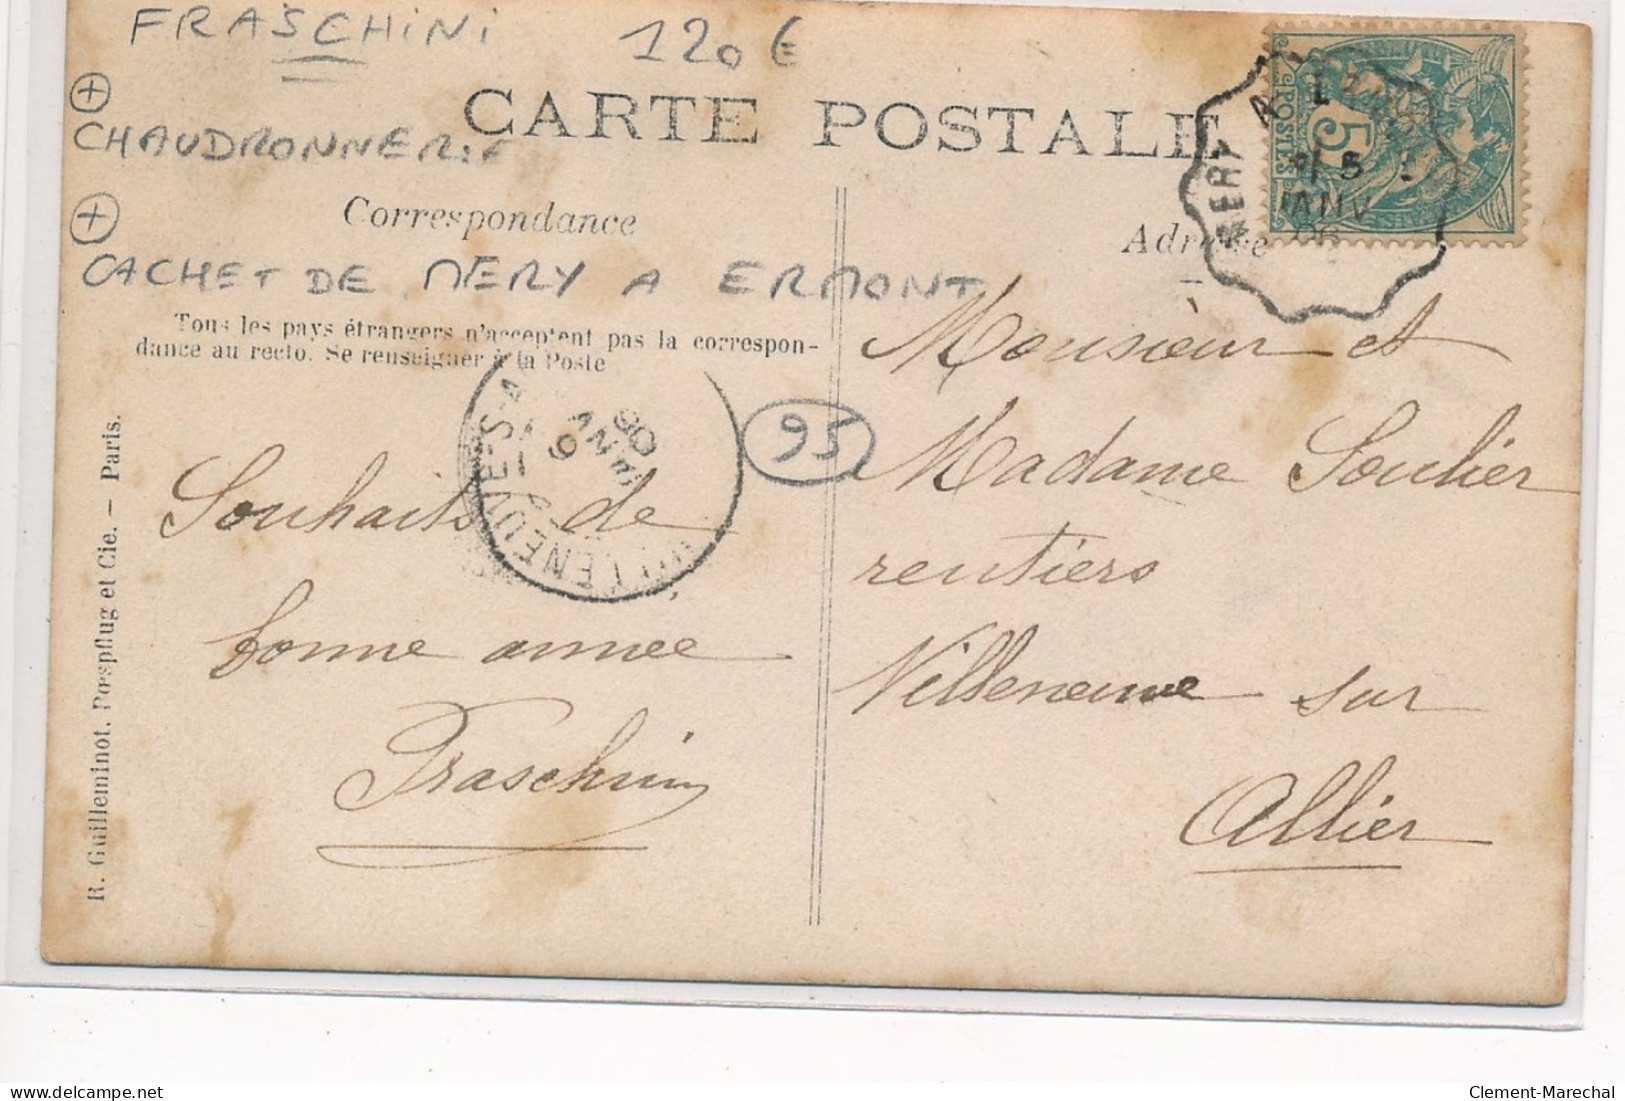 FRASCHINI 120€
CARTE POSTALE
CHAUDRONNERIE
Correspondance
CACHET DE MERY A ERMONT
Tous les pays étrangers n'acceptent pas la correspon-
dance au recto. Se renseigner à la Poste
95
Souhaits de
bonne année
Fraschini
R. Guilleminot, Pœspflug et Cie. — Paris.
VILLENEUVE-S-A
POSTES 5
MERY A
5
JANV
06
Adresse
Monsieur et
Madame Soulier
rentiers
Villeneuve sur
Allier
Clement-Marechal